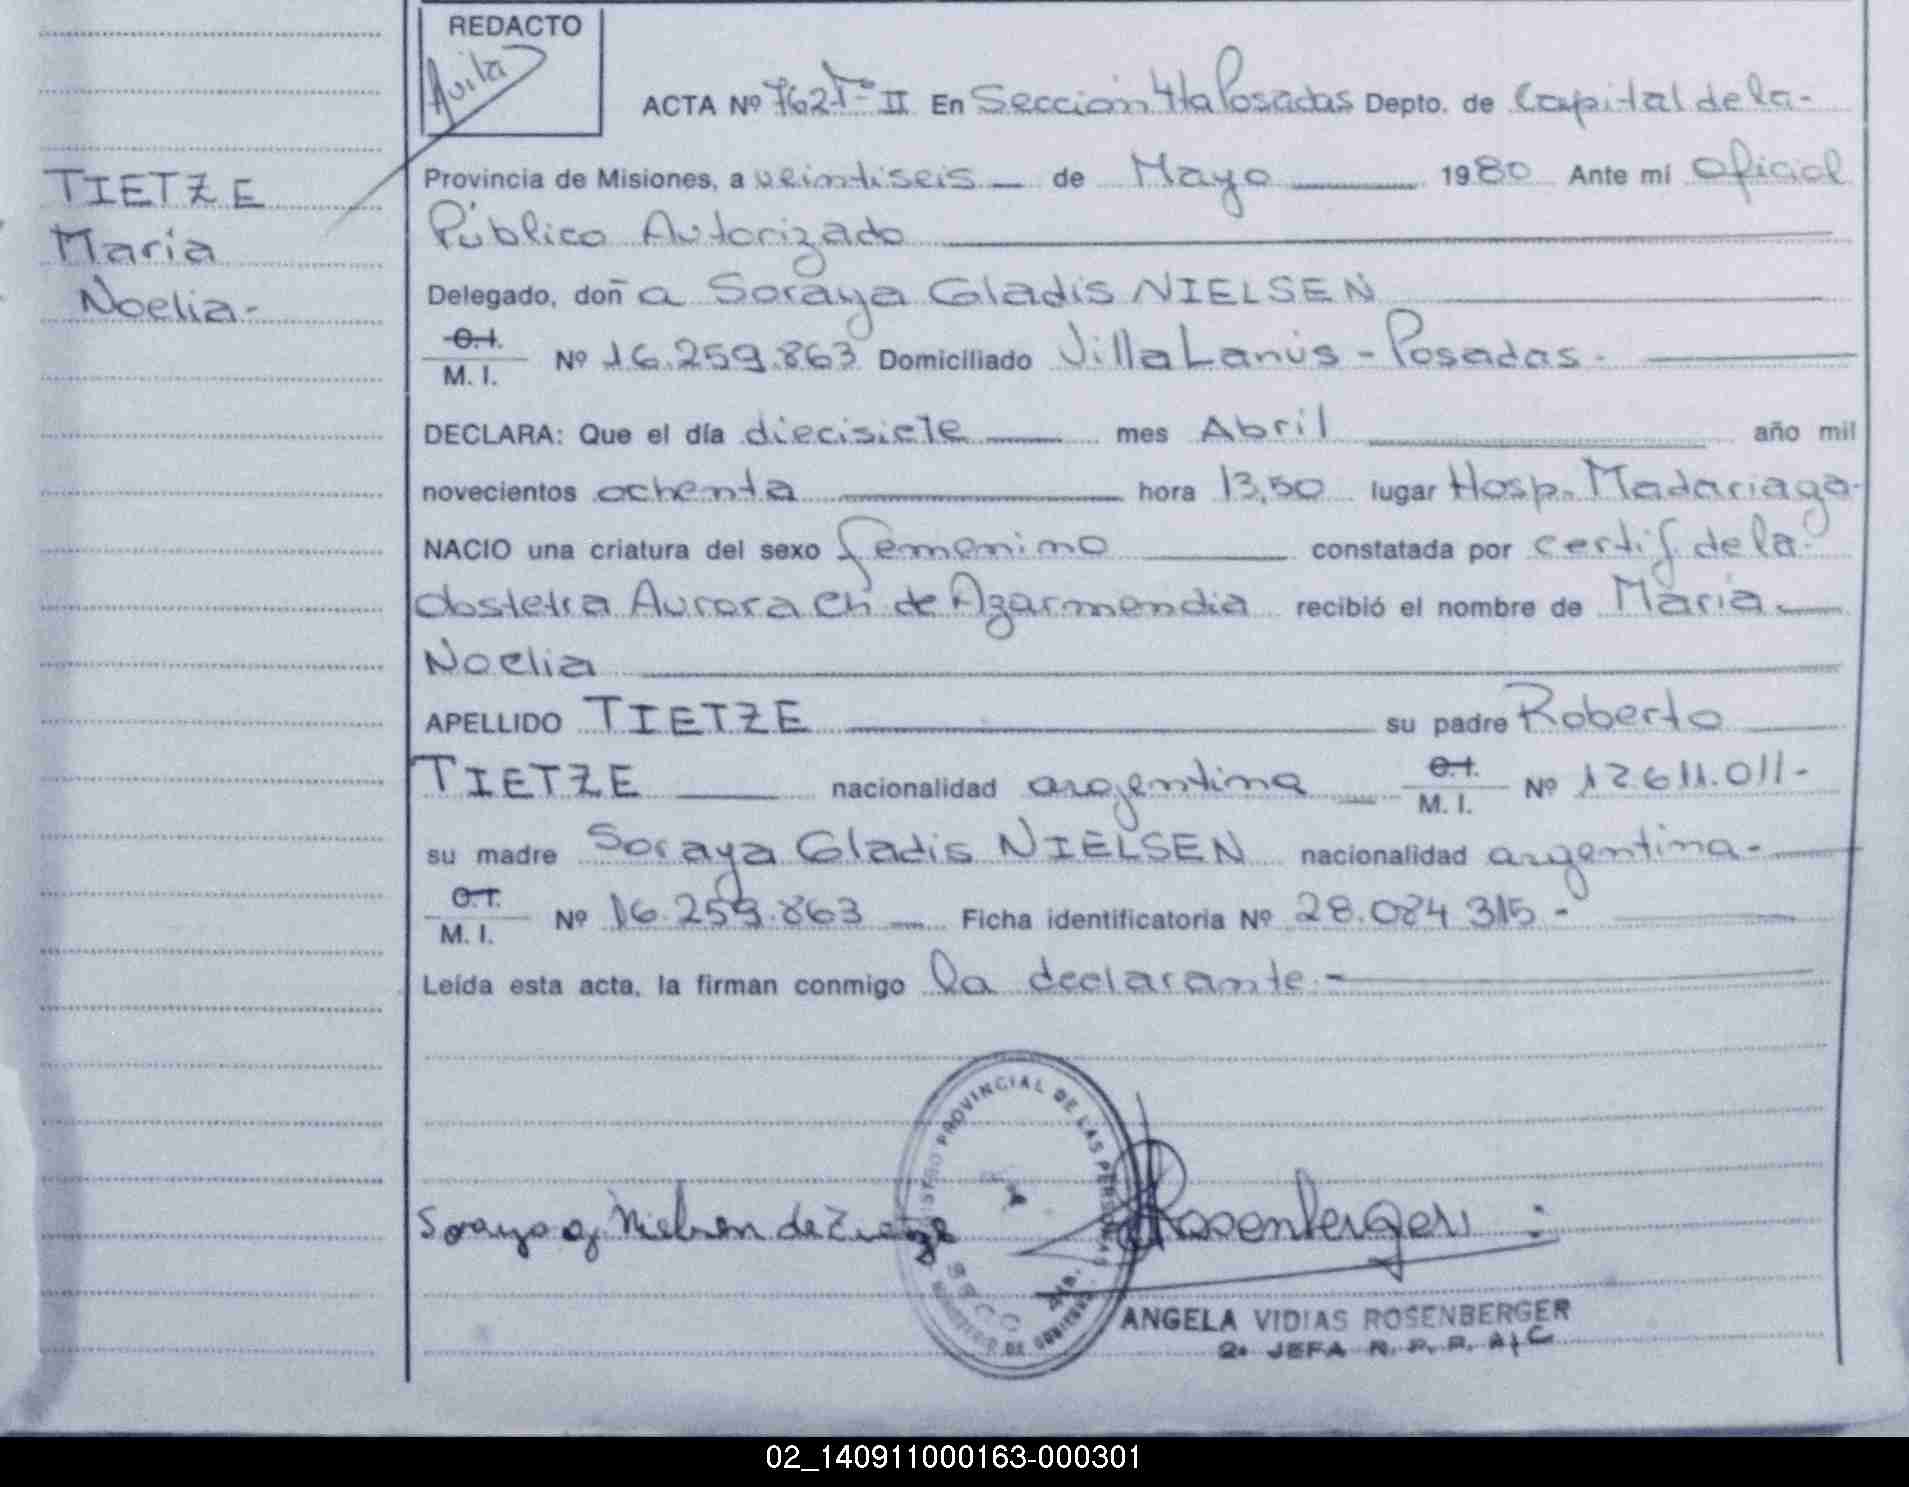 REDACTO
Avila
ACTA Nº 762 Tº II En Sección 4ta Posadas Depto. de Capital de la-
TIETZE
Provincia de Misiones, a veintiseis de Mayo 1980 Ante mí Oficial
María
Público Autorizado
Noelia-
Delegado, doña Soraya Gladis NIELSEN
C.I.
M. I. Nº 16.259.863 Domiciliado Villa Lanús - Posadas-
DECLARA: Que el día diecisiete mes Abril año mil
novecientos ochenta hora 13,50 lugar Hosp. Madariaga-
NACIO una criatura del sexo femenino constatada por certif. de la
obstetra Aurora Ch de Azarmendia recibió el nombre de María
Noelia
APELLIDO TIETZE su padre Roberto
TIETZE nacionalidad argentina C.I.
M. I. Nº 12.611.011-
su madre Soraya Gladis NIELSEN nacionalidad argentina-
C.I.
M. I. Nº 16.259.863 Ficha identificatoria Nº 28.084.315-
Leída esta acta, la firman conmigo la declarante.-
PROVINCIAL DE LAS PERSONAS
Soraya G. Nielsen de Tietze
Rosenberger
ANGELA VIDIAS ROSENBERGER
2ª JEFA R. P. P. A/C
02_140911000163-000301